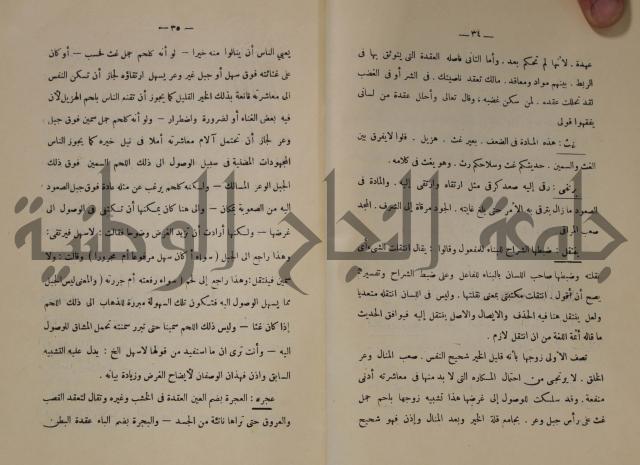 — ٣٤ —
عهدة . لأنها لم تحكم بعد . وأما الثانى فأصله العقدة التى يتوثق بها فى
الربط . بينهم مواد ومعاقد . مالك تعقد ناصيتك . فى الشر أو فى الغضب
لقد تحللت عقده . لمن سكن غضبه ، وقال تعالى وأحلل عقدة من لسانى
يفقهوا قولى
غث : هذه المادة فى الضعف . بعير غث . هزيل . قالوا لايفرق بين
الغث والسمين . حديثكم غث وسلاحكم رث . وهو يغث فى كلامه .
رقى إليه صعد كرقى مثل ارتقاه وارتقى إليه . والمادة فى
الصعود مازال يترقى به الأمر حتى بلغ غايته . الجود مرقاة إلى الشرف . المجد
صعب المراقى
ينتقل : ضبطها الشراح للبناء للمفعول وقالوا : يقال انتقلت الشىء أى
نقلته وضبطها صاحب اللسان بالبناء للفاعل وعلى ضبط الشراح وتفسيرهم
يصح أن أقول . انتقلت مكتبتى بمعنى نقلتها . وليس فى اللسان انتقله متعديا
ولعل ينتقل هنا فيه الحذف والايصال والاصل ينتقل إليه فيوافق الحديث
ما قاله أئمة اللغة من ان انتقل لازم .
تصف الأولى زوجها بأنه قليل الخير شحيح النفس . صعب المنال وعر
الخلق . لا يرتجى من احتمال المكاره التى لا بد منها فى معاشرته أدنى
منفعة . وقد سلكت للوصول إلى غرضها هذا تشبيه زوجها بلحم جمل
غث على رأس جبل وعر . بجامع قلة الخير وبعد المنال وإذن فهو شحيح
— ٣٥ —
يعي الناس أن ينالوا منه خيرا — لو أنه كلحم جمل غث فحسب — أو كان
على غثاثته فوق سهل أو جبل غير وعر يسهل ارتقاؤه لجاز أن تسكن النفس
الى معاشرته قانعة بذلك الخير القليل كما يجوز أن تقنعه الناس بلحم الهزيل لأن
فيه بعض الغناء أو لضرورة واضطرار — ولو أنه كلحم جمل سمين فوق جبل
وعر لجاز أن تحتمل آلام معاشرته أملا فى نيل خيره كما يجوز الناس
المجهودات المضنية فى سبيل الوصول الى ذلك اللحم السمين فوق ذلك
الجبل الوعر المسالك — ولكنه كلحم يرغب عن مثله عادة فوق جبل الصعود
اليه من الصعوبة بمكان — والى هنا كان يمكنها أن تكتفى فى الوصول الى
غرضها — ولكنها أرادت أن تزيد الغرض وضوحا فقالت : لاسهل فيرتقى :
وهذا راجع الى الجبل (سواء أكان سهل مرفوعا أم مجرورا) وقالت : ولا
سمين فينتقل : وهذا راجع إلى لحم (سواء رفعته أم جررته) والمعنى ليس الجبل
مما يسهل الوصول اليه فتكون تلك السهولة مبررة للذهاب الى ذلك اللحم
إذا كان غثا — وليس ذلك اللحم سمينا حتى تبرر سمنته تحمل المشاق للوصول
اليه — وأنت ترى ان ما استفيد من قولها لاسهل الخ : يدل عليه التشبيه
السابق واذن فهذان الوصفان لايضاح الغرض وزيادة بيانه .
عجره : العجرة بضم العين العقدة فى الخشب وغيره وتقال لتعقد العصب
والعروق حتى تراها ناتئة من الجسد — والبجرة بضم الباء عقدة البطن
جمعة النجاح الوطنية